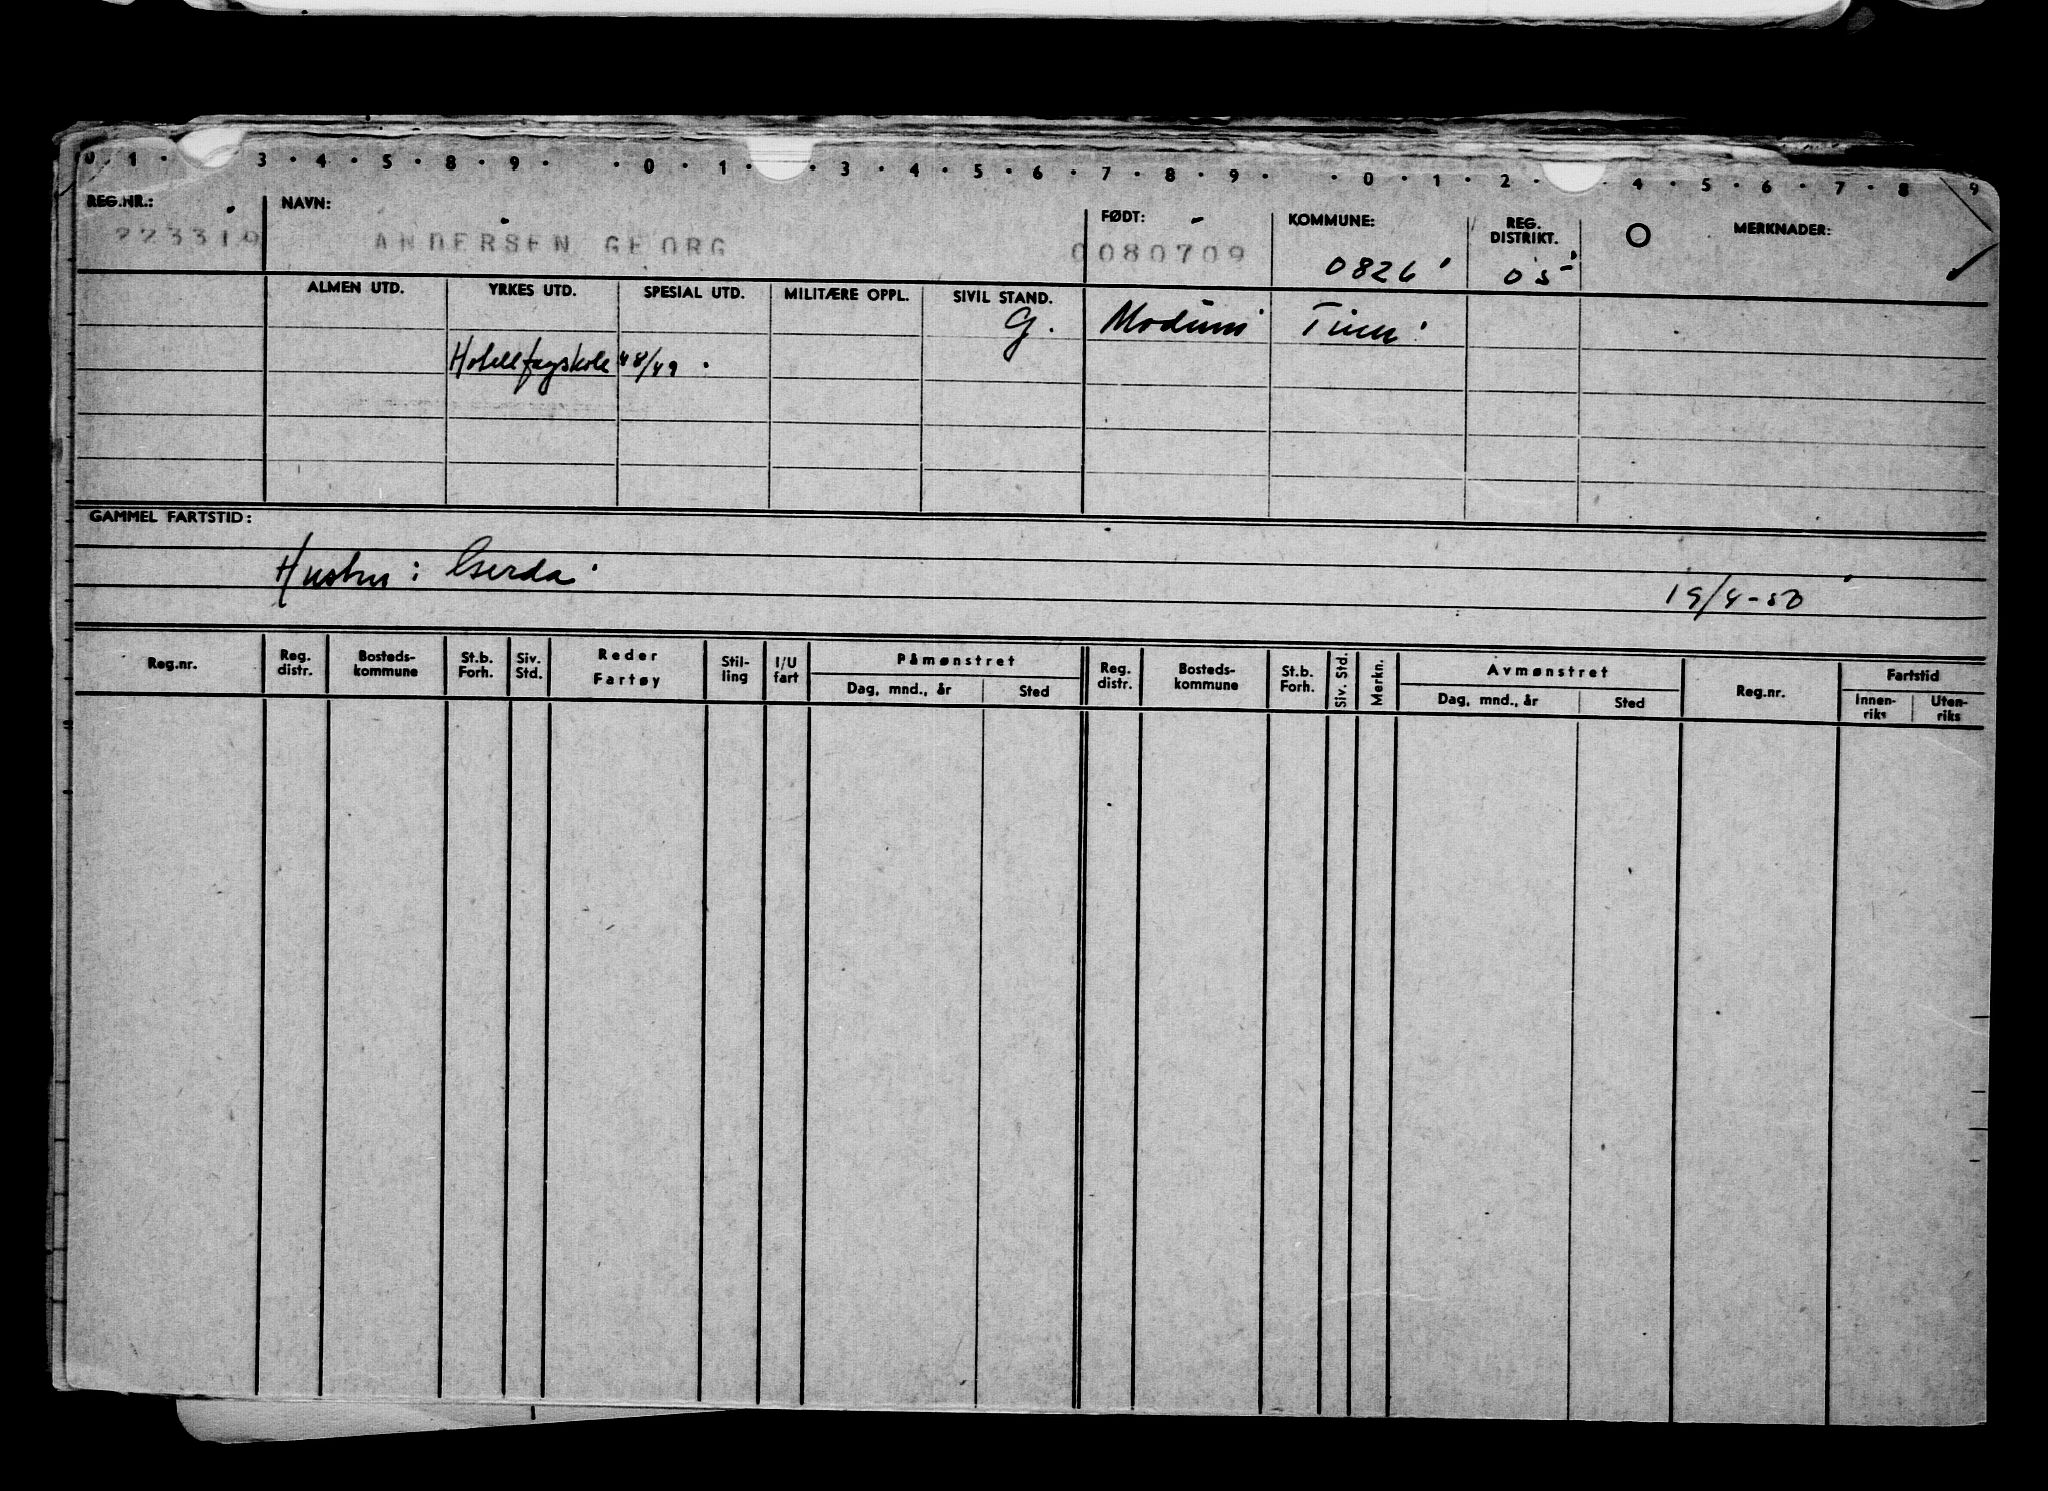 0 1 · 3 · 4 · 5 · 8 · 9 · · 0 · 1 · · 3 · 4 · 5 · 6 · 7 · 8 · 9 · · 0 · 1 · 2 · · 4 · 5 · 6 · 7 · 8 9
REG.NR.: NAVN: FØDT: KOMMUNE: REG. DISTRIKT. MERKNADER:
223310 ANDERSEN GEORG 0080709 0826 05
ALMEN UTD. YRKES UTD. SPESIAL UTD. MILITÆRE OPPL. SIVIL STAND.
G. Modum Tinn
Hotellfagskole 48/49
GAMMEL FARTSTID:
Hustru: Gerda
19/4-50
Reg.nr. Reg. distr. Bosteds-kommune St.b. Forh. Siv. Std. Reder Fartøy Stil-ling I/U fart Påmønstret Reg. distr. Bosteds-kommune St.b. Forh. Siv. Std. Merkn. Avmønstret Reg.nr. Fartstid
Dag, mnd., år Sted Dag, mnd., år Sted Innen-riks Uten-riks